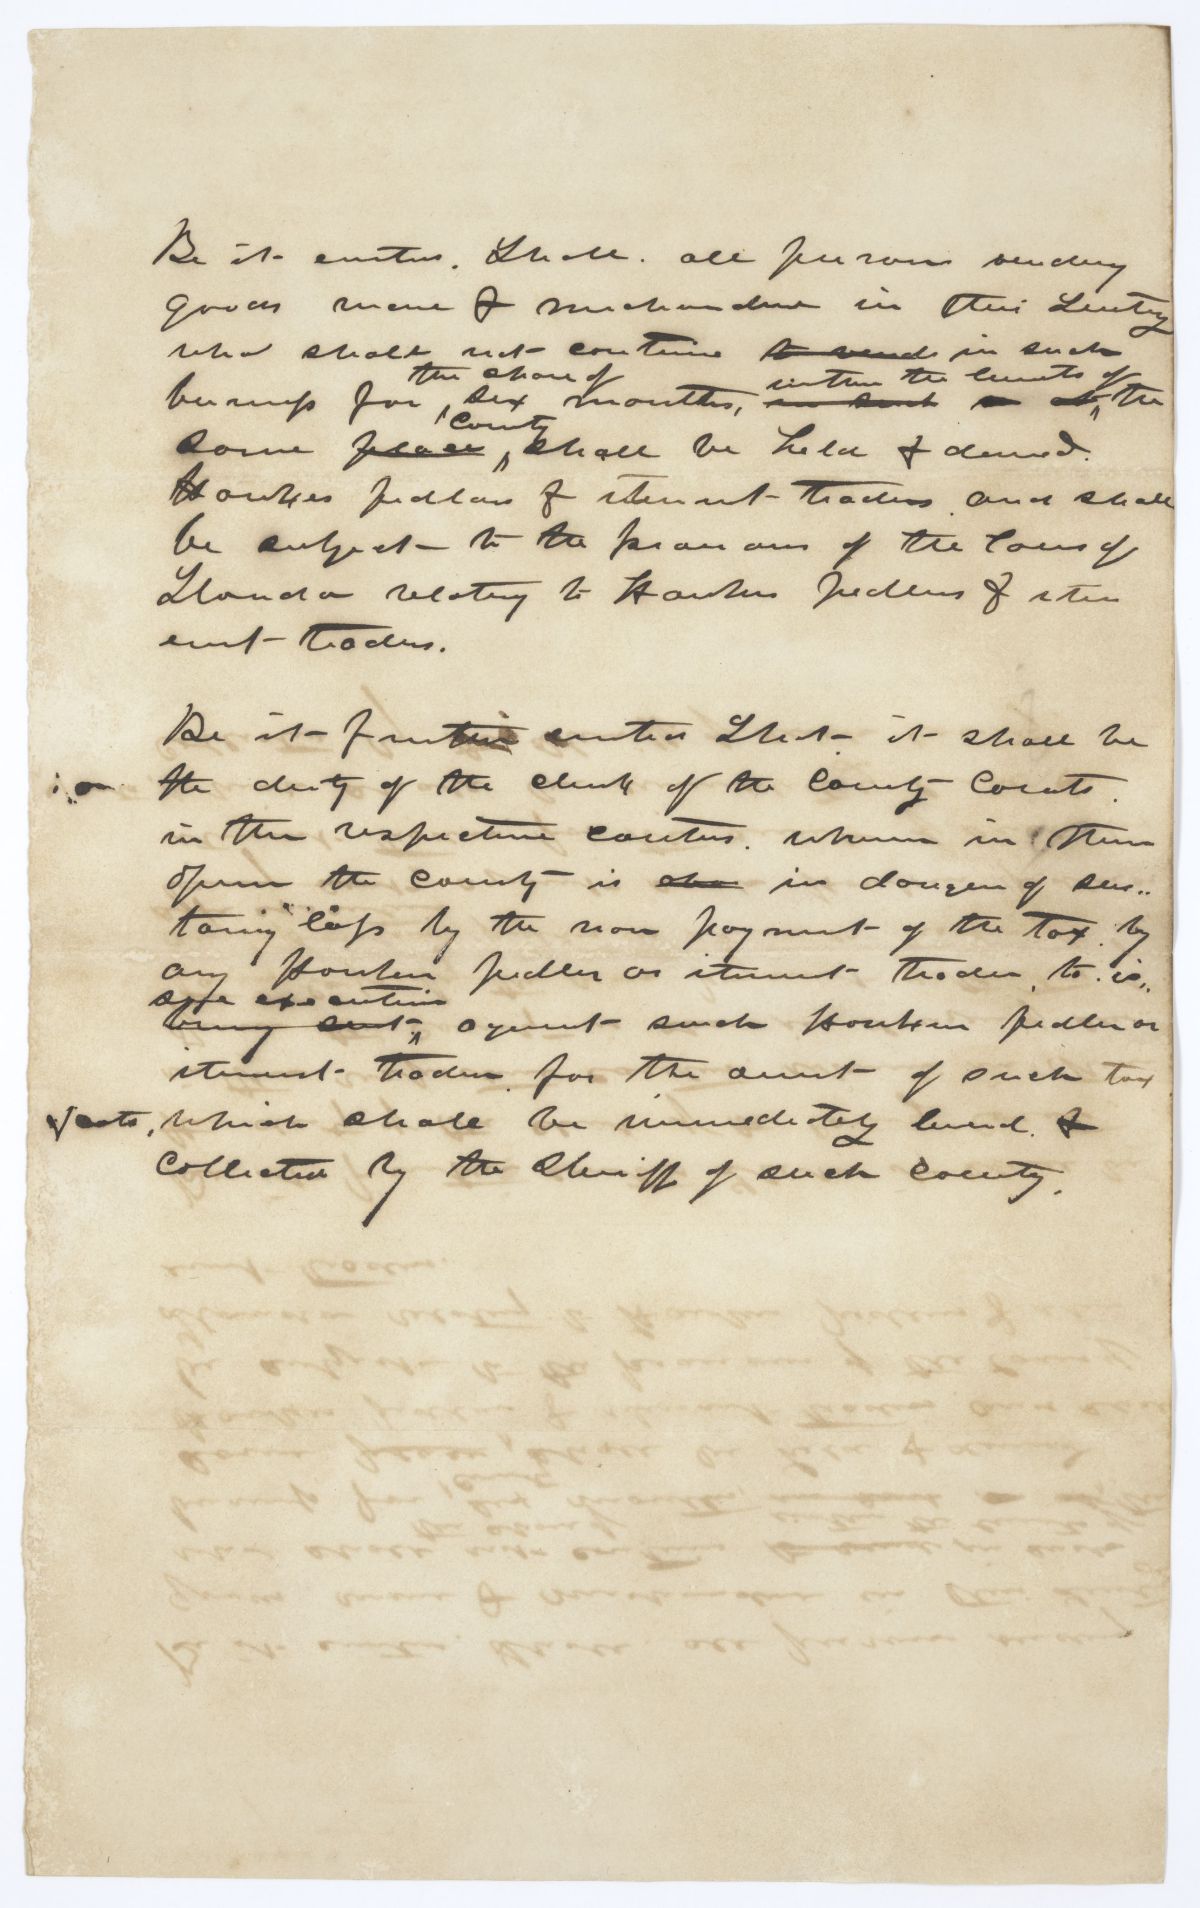 Be it enacted. That all persons vending
goods wares & merchandise in this Territory
who shall not continue to vend in such
the space of within the limits of
business for six months, in such the
county
same place shall be held & deemed
Hawkers pedlars & itinerant traders and shall
be subject to the provisions of the laws of
Florida relating to Hawkers pedlers & itin
erant traders.
Be it further enacted That it shall be
the duty of the clerk of the County Courts.
in the respective counties. wherein in their
opinion the county is in danger of sus..
taining loss by the non payment of the tax by
any Hawker pedler or itinerant trader, to is..
sue execution
being sent against such Hawker pedler or
itinerant trader for the amt of such tax
& costs, which shall be immediately levied &
collected by the Sheriff of such county.